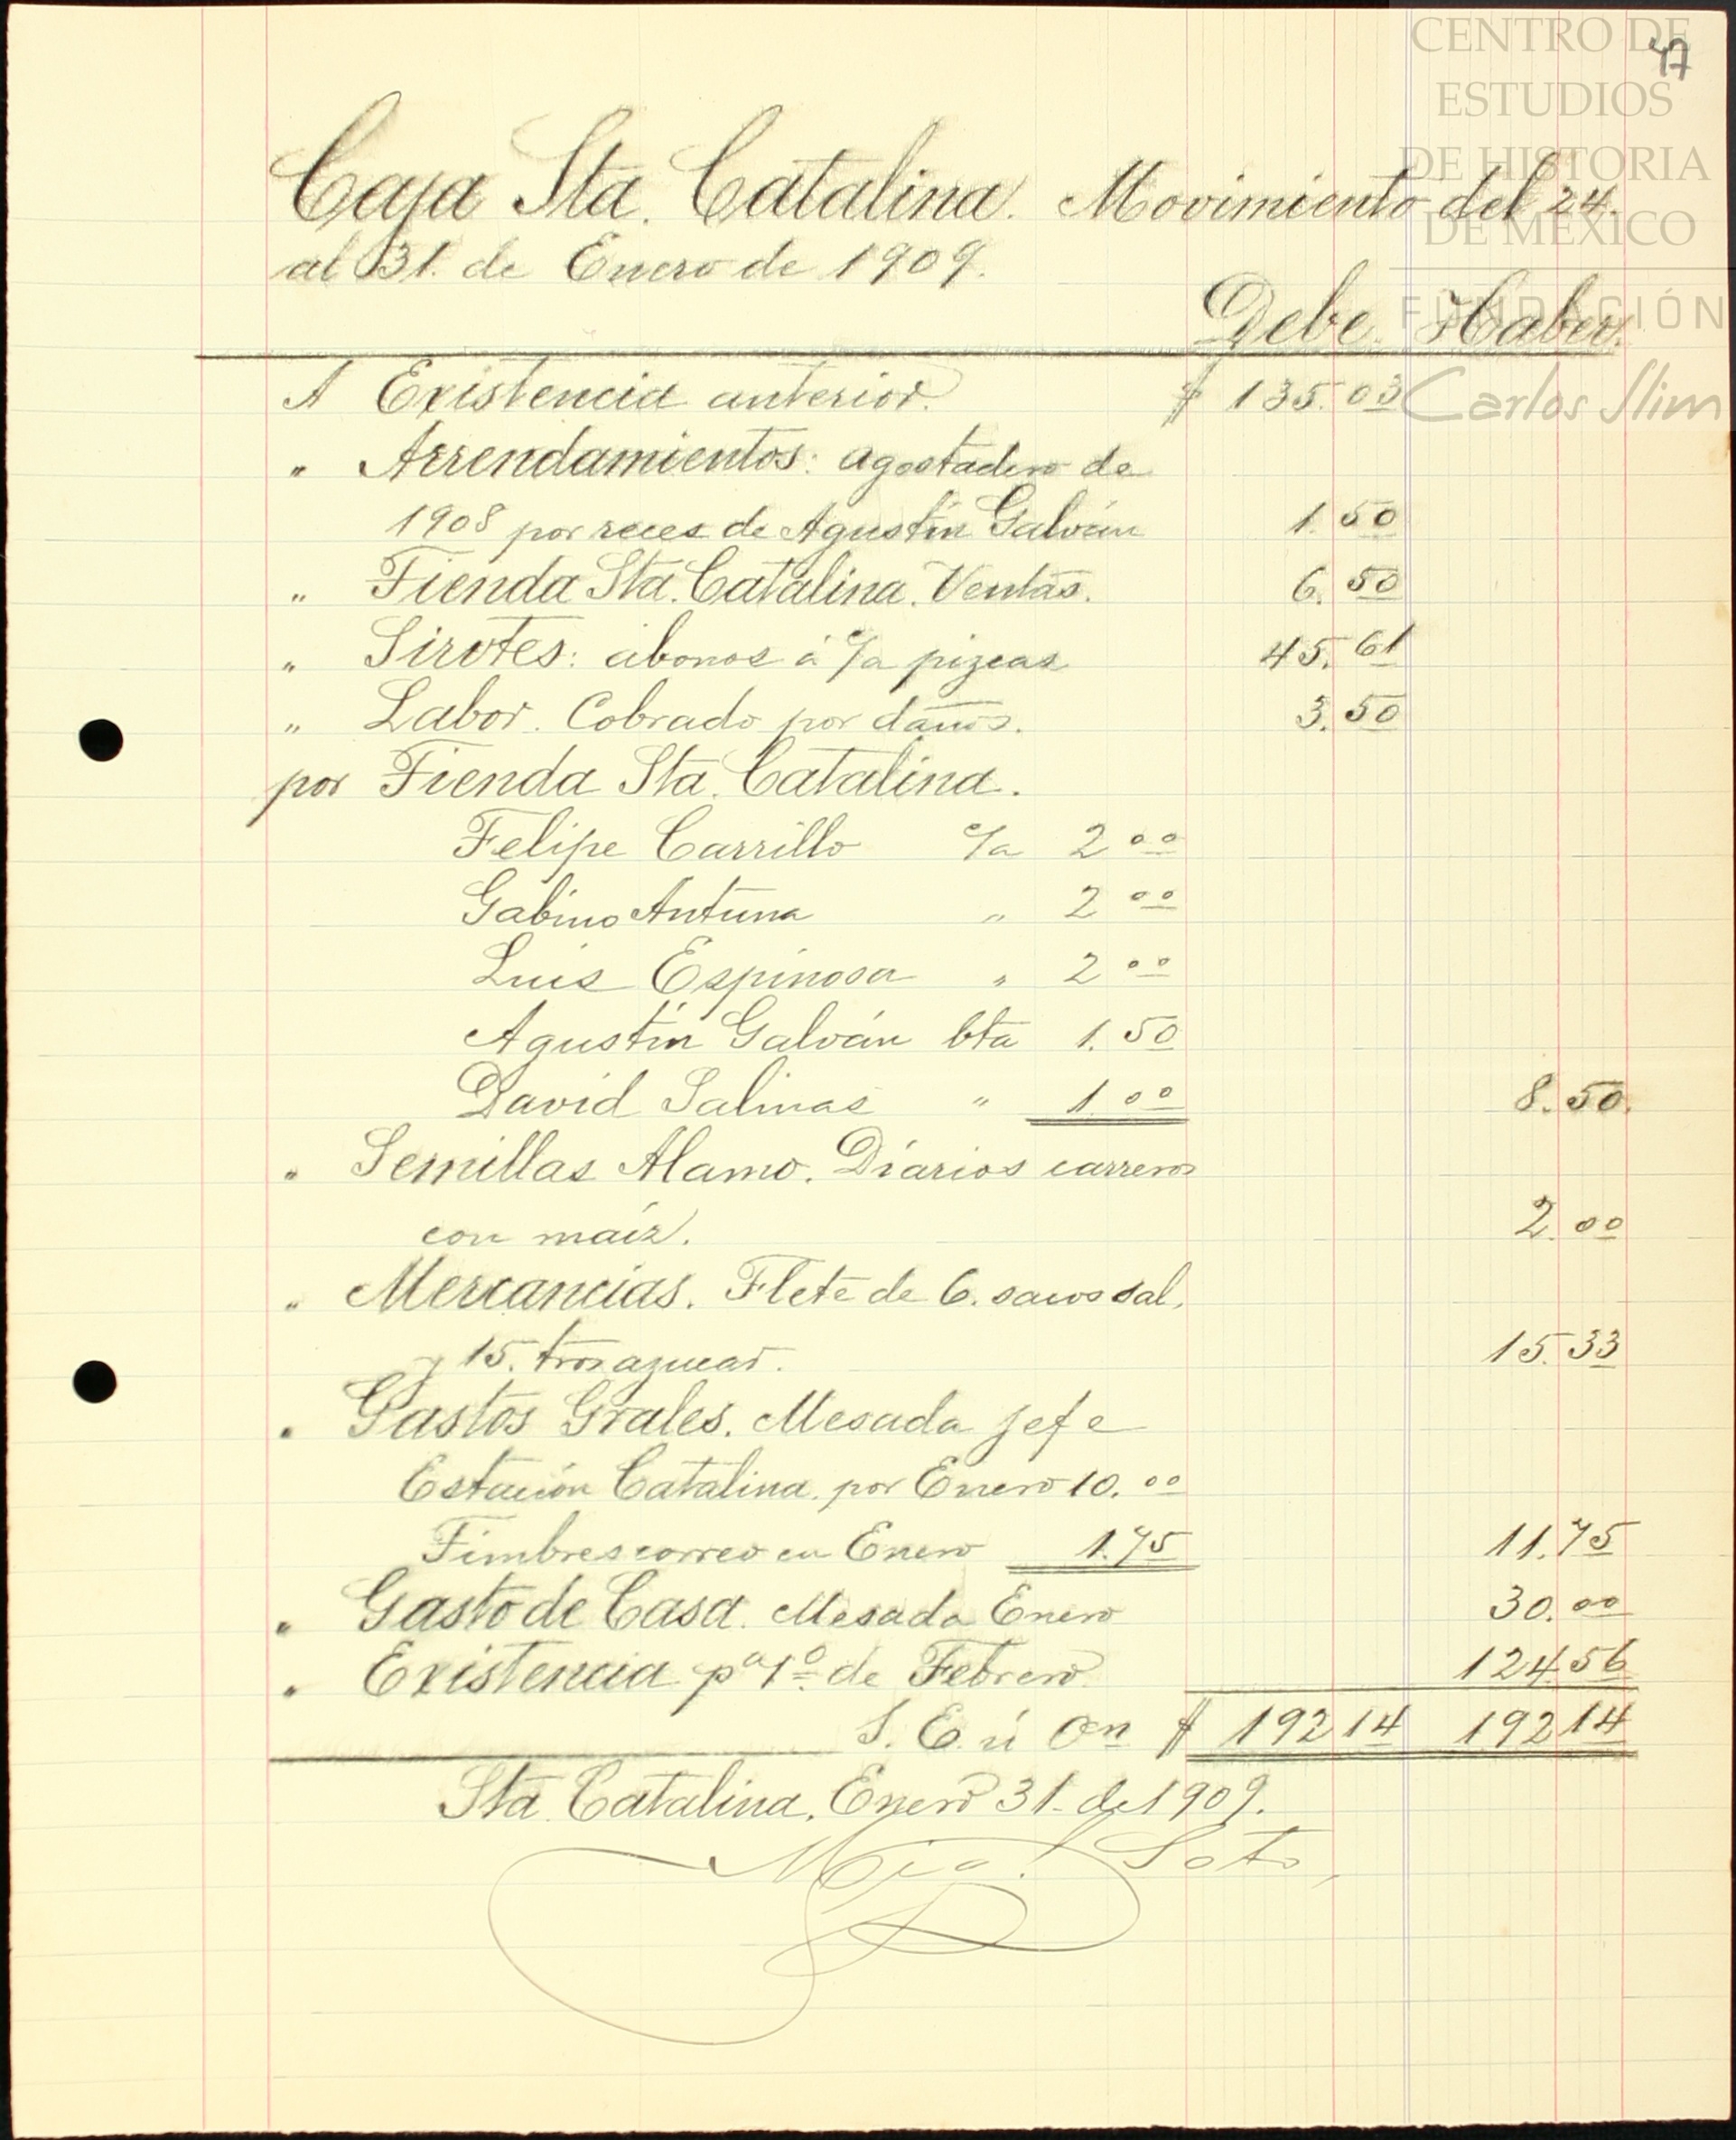 CENTRO DE
ESTUDIOS
DE HISTORIA
DE MÉXICO
FUNDACIÓN
Carlos Slim
47
Caja Sta. Catalina. Movimiento del 24.
al 31. de Enero de 1909.
Debe. Haber.
A Existencia anterior. $ 135.03
" Arrendamientos: agostadero de
1908 por reces de Agustín Galván 1.50
" Tienda Sta. Catalina. Ventas. 6.50
" Sirotes: abonos á c/a pizcas 45.61
" Labor. Cobrado por daños. 3.50
por Tienda Sta. Catalina.
Felipe Carrillo c/a 2 00
Gabino Antuna " 2 00
Luis Espinosa " 2 00
Agustín Galván bta 1.50
David Salinas " 1 00 8.50.
" Semillas Alamo. Diarios carreros
con maíz. 2.00
" Mercancías. Flete de 6. sacos sal,
y 15. azucar. 15.33
" Gastos Grales. Mesada jefe
Estación Catalina. por Enero 10.00
Timbres correo en Enero 1.75 11.75
" Gasto de Casa. Mesada Enero 30.00
" Existencia pa 1o de Febrero. 124.56
S. E. ú On $ 192 14 192 14
Sta. Catalina. Enero 31. de 1909.
Mig. Soto,